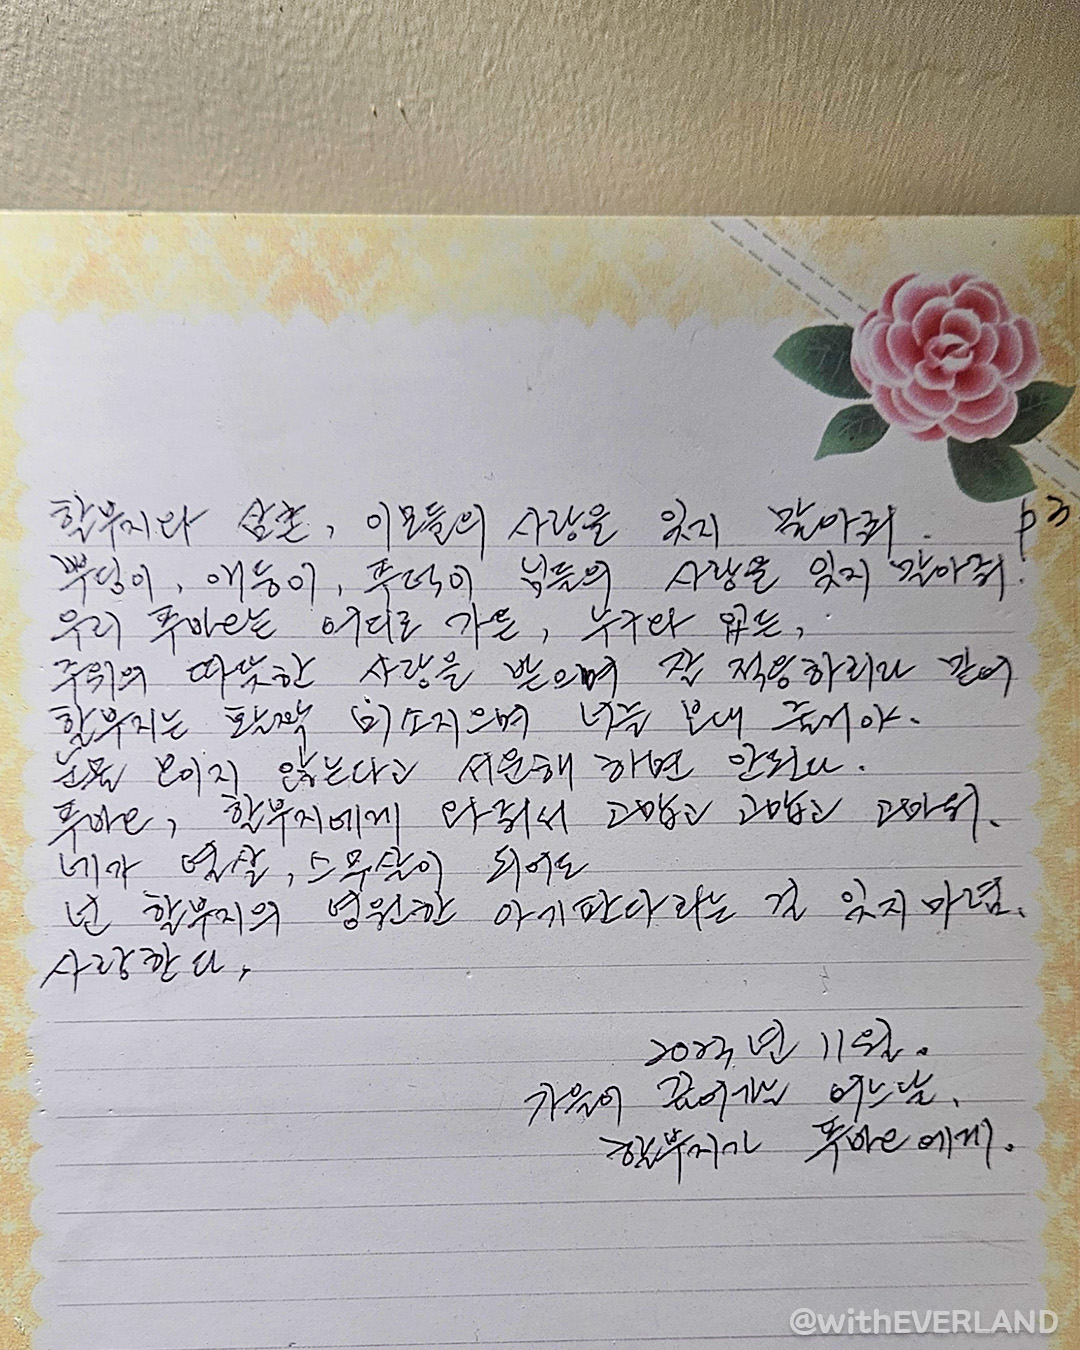 할부지와 삼촌, 이모들의 사랑을 잊지 말아줘. p3
뿌덩이, 애등이, 푸덕이 님들의 사랑을 잊지 말아줘.
우리 푸바오는 어디로 가든, 누구와 있든,
주위의 따뜻한 사랑을 받으며 잘 적응하리라 믿어
할부지는 활짝 미소지으며 너를 보내 줄거야.
눈물 보이지 않는다고 서운해 하면 안된다.
푸바오, 할부지에게 와줘서 고맙고 고맙고 고마워.
네가 열살, 스무살이 되어도
넌 할부지의 영원한 아기판다라는 걸 잊지마렴.
사랑한다,
2023년 11월.
가을이 끝어가는 어느날.
할부지가 푸바오에게.
@withEVERLAND